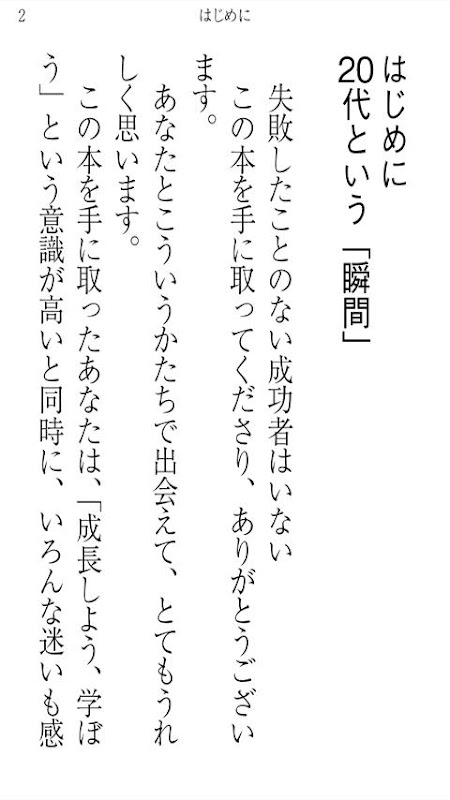 2
はじめに
はじめに
20代という「瞬間」
失敗したことのない成功者はいない
この本を手に取ってくださり、ありがとうござい
ます。
あなたとこういうかたちで出会えて、とてもうれ
しく思います。
この本を手に取ったあなたは、「成長しよう、学ぼ
う」という意識が高いと同時に、いろんな迷いも感